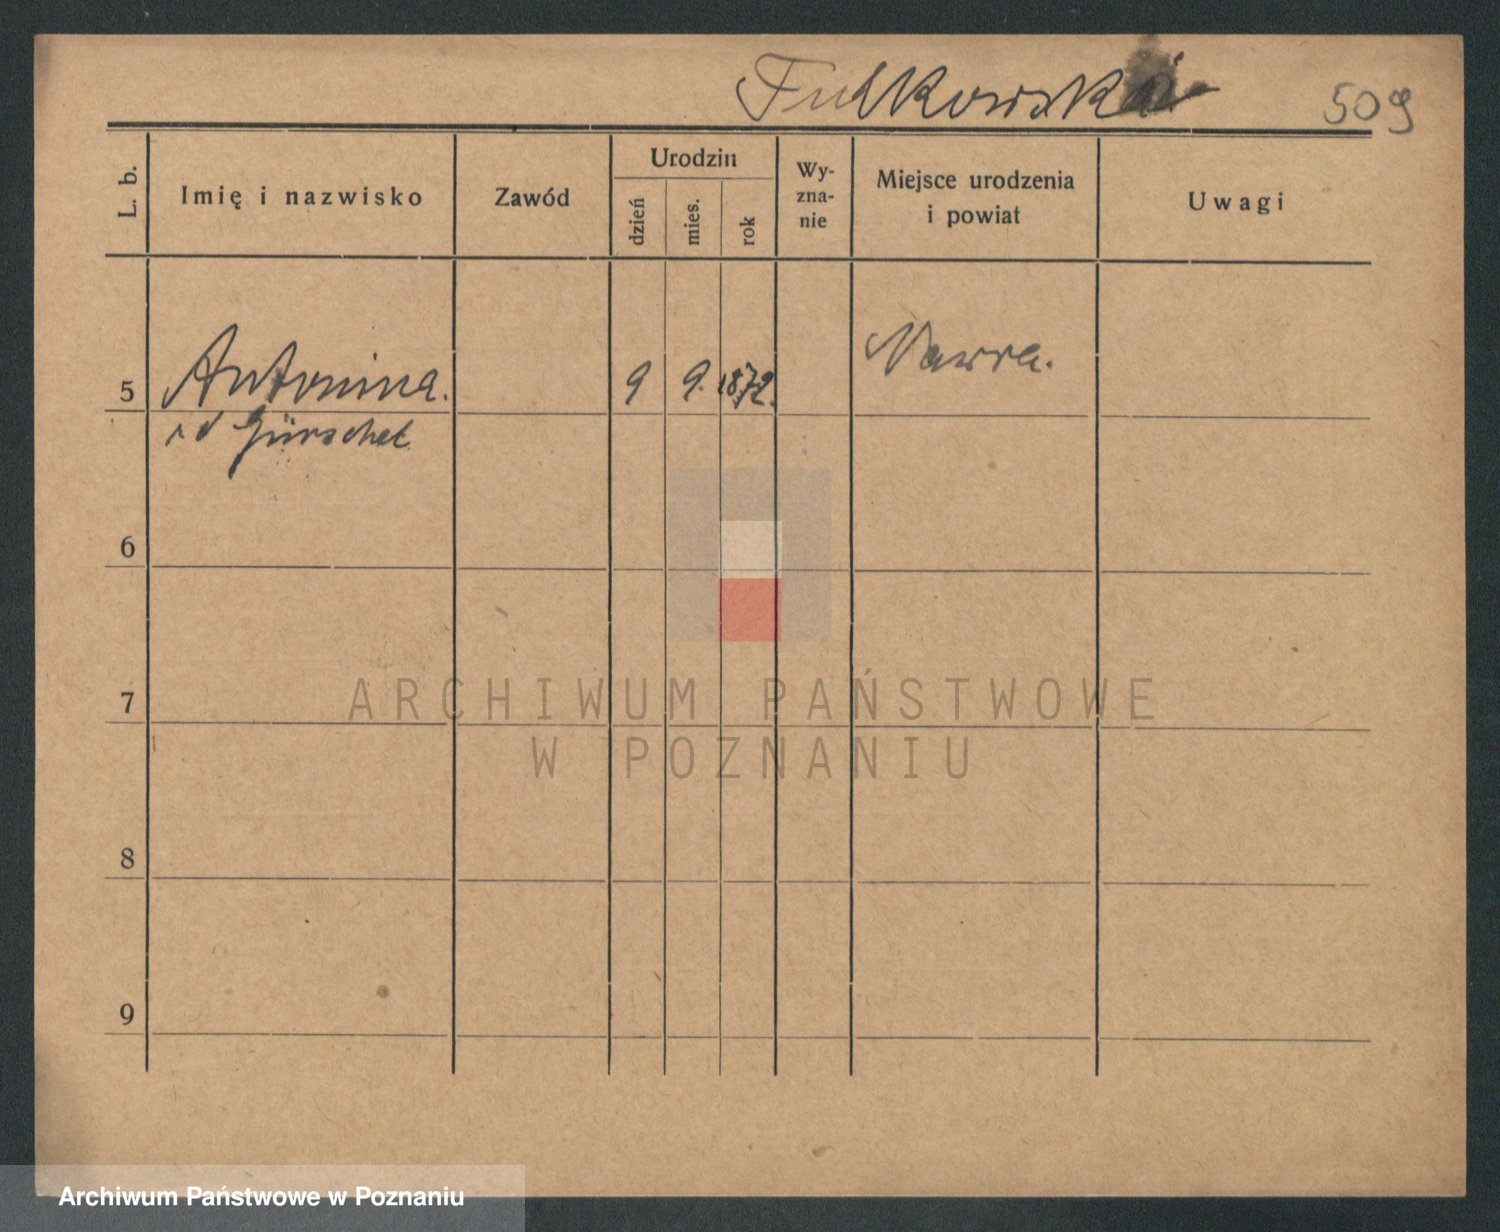 509
L. b.
Imię i nazwisko
Zawód
Urodzin
dzień
mies.
rok
Wy-
zna-
nie
Miejsce urodzenia
i powiat
Uwagi
5
Antonina.
9 9. 1872.
6
7
8
9
ARCHIWUM PAŃSTWOWE
W POZNANIU
Archiwum Państwowe w Poznaniu